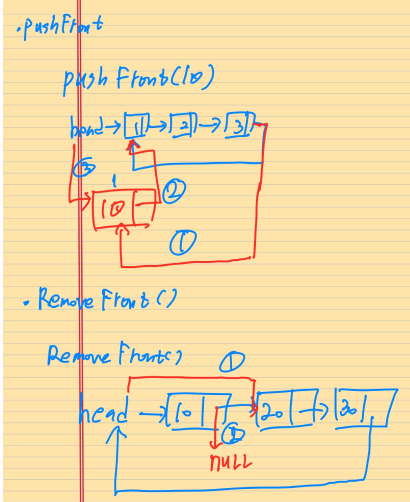 • pushFront
pushFront(10)
head → 1 → 2 → 3
③
1
10 ②
①
• RemoveFront()
RemoveFront() ①
head → 10 → 20 → 30
②
NULL